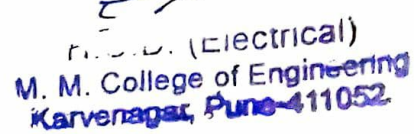 H.O.D. (Electrical)
M. M. College of Engineering
Karvenagar, Pune-411052.